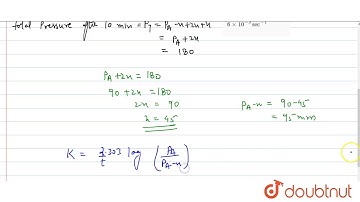 total Pressure after 10 min = P7 = PA -x+2x+x
= PA +2x
= 180
6×10⁻³ sec⁻¹
PA +2x = 180
90 +2x = 180
2x = 90
x = 45
PA -x = 90-45
= 45 mm
K = 2.303/t log (PA/PA-x)
doubtnut